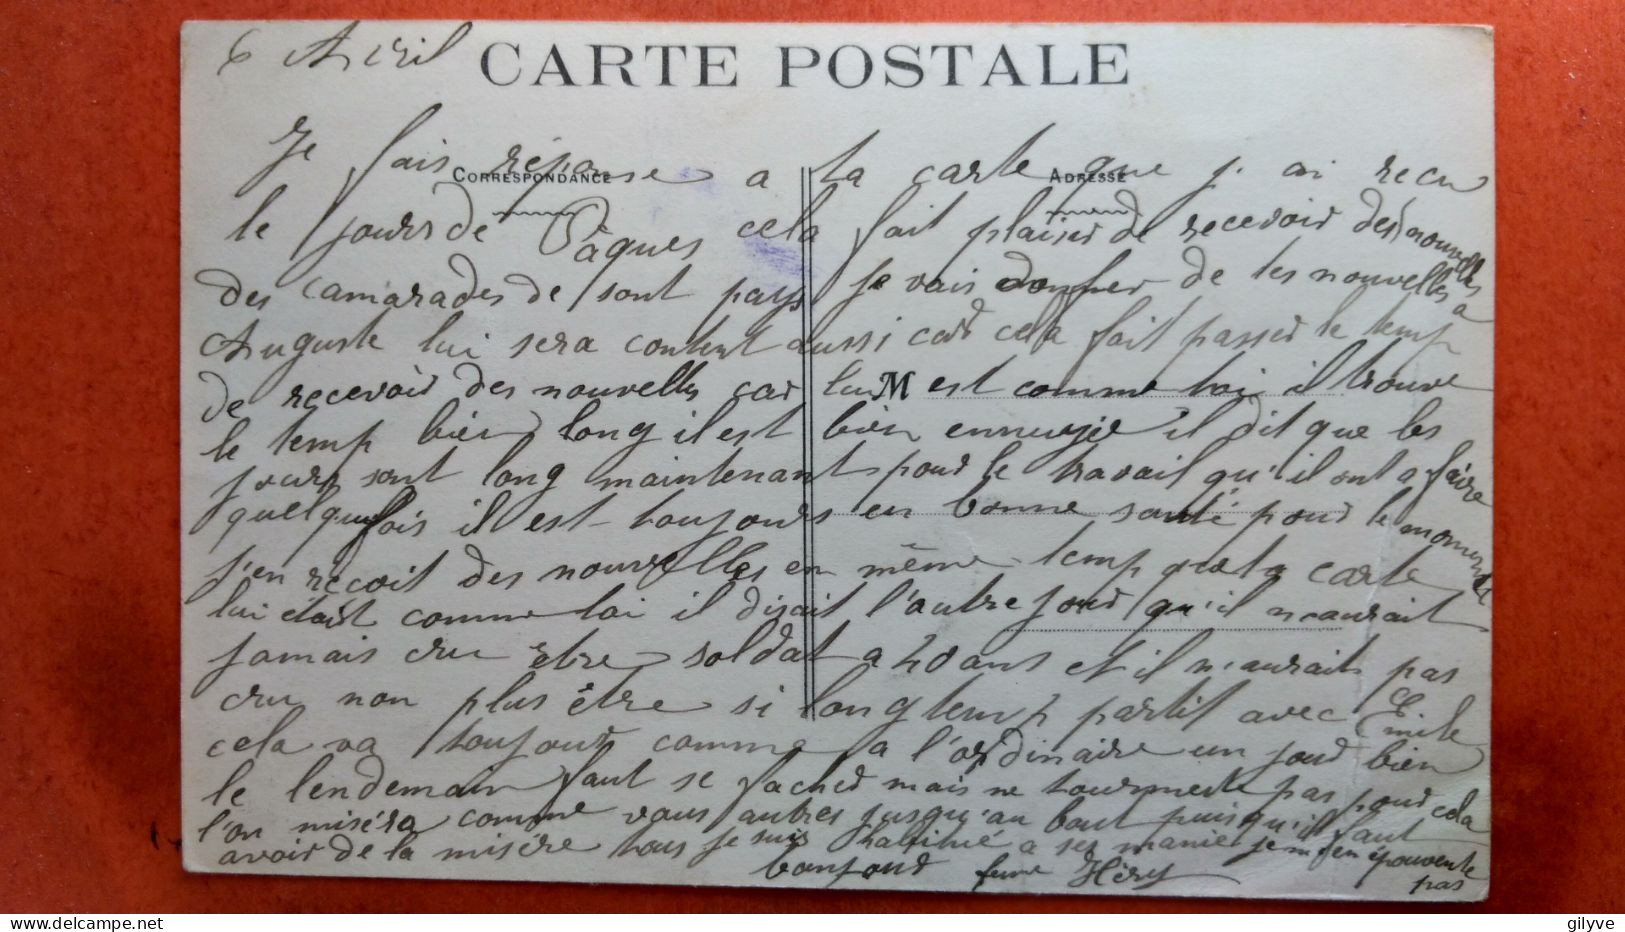 6 Avril
CARTE POSTALE
CORRESPONDANCE
ADRESSE
M
Je fais réponse a ta carte que j. ai recu
le jours de Pâques cela fait plaisir de recevoir des nouvelles
des camarades de sont pays je vais donner de tes nouvelles a
Auguste lui sera content aussi car cela fait passer le temp
de recevoir des nouvelles car lui est comme toi il trouve
le temp bien long il est bien ennuyé il dit que les
jours sont long maintenant pour le travail qu'il ont a faire
quelquefois il est toujours en bonne santé pour le moment
j'en reçoit des nouvelles en même temp que ta carte
lui était comme toi il disait l'autre jour qu'il n'aurait
jamais cru être soldat a 40 ans et il n'aurait pas
cru non plus être si longtemp partit avec Emile
cela va toujour comme a l'ordinaire un jour bien
le lendemain faut se facher mais ne tourmente pas pour cela
l'on miséra comme vous autres jusqu'au bout puisqu'il faut
avoir de la misère tous je suis habitué a ses manie je m'en épouvente
pas
bonjour feme Héry
gilyve